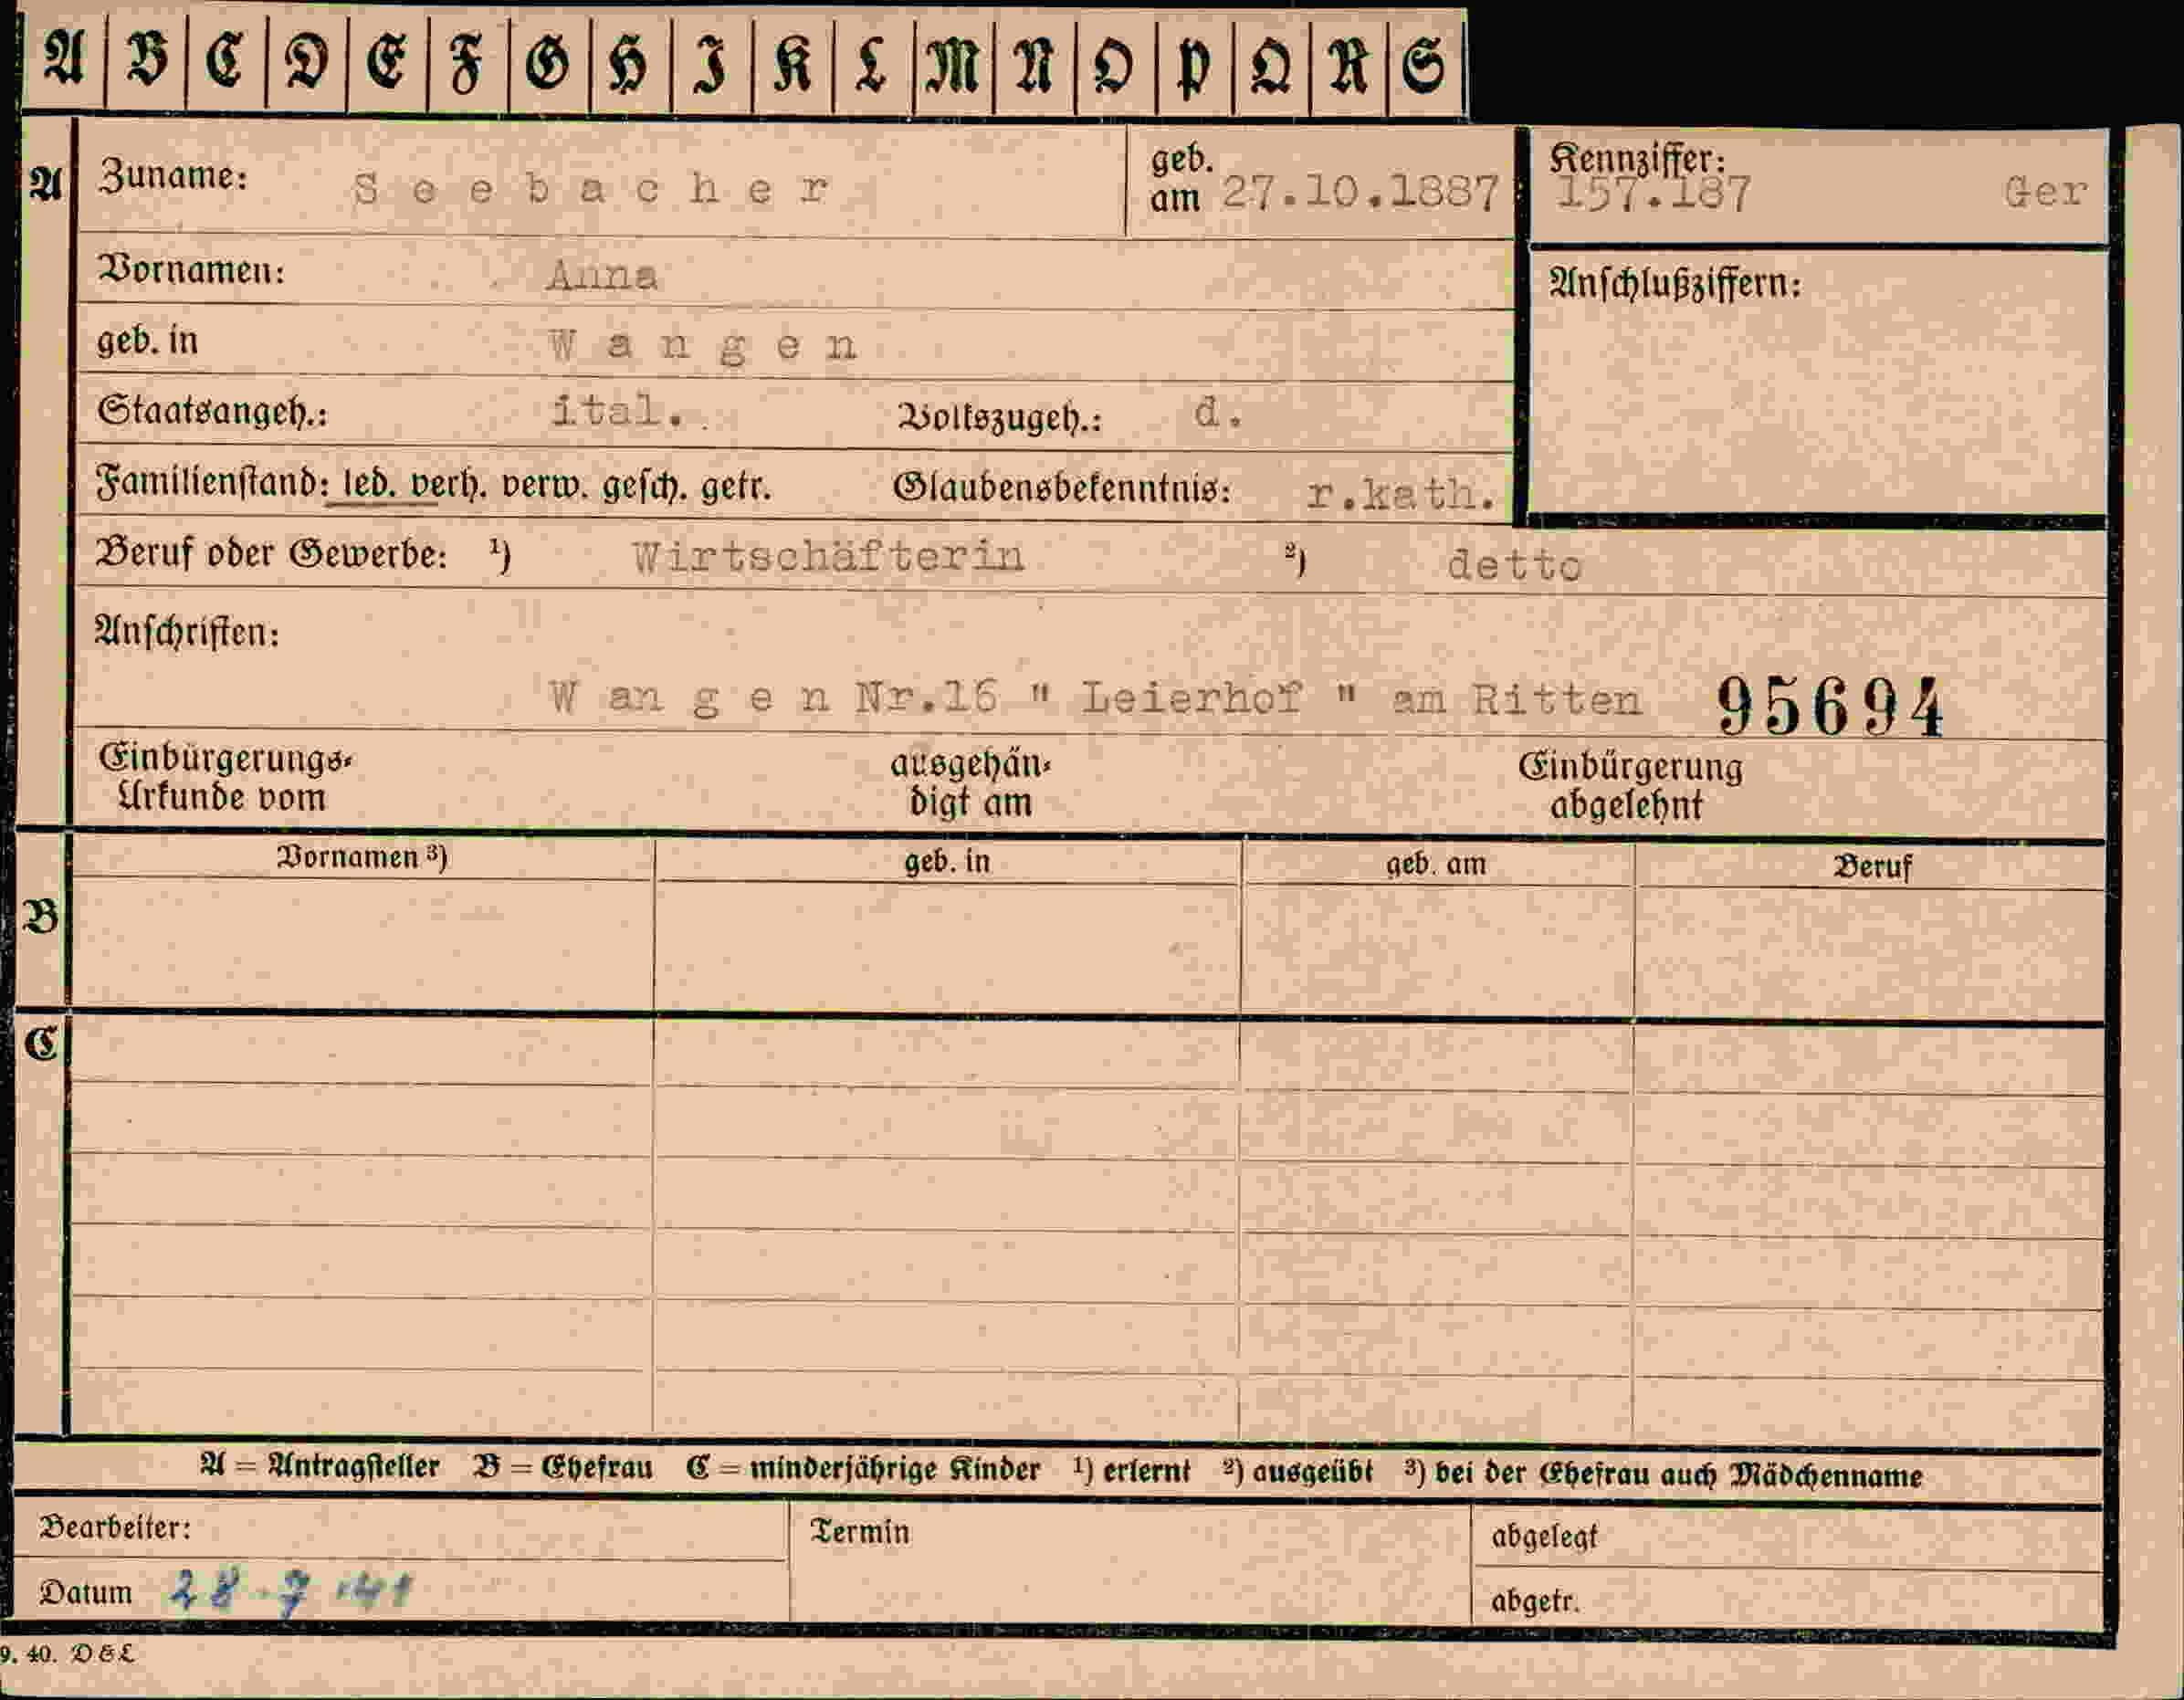 A B C D E F G H I K L M N O P Q R S
A Zuname: Seebacher geb. am 27.10.1887 Kennziffer: 157.187 Ger
Vornamen: Anna Anschlußziffern:
geb. in Wangen
Staatsangeh.: ital. Volkszugeh.: d.
Familienstand: led. verh. verw. gesch. getr. Glaubensbekenntnis: r.kath.
Beruf oder Gewerbe: ¹) Wirtschäfterin ²) detto
Anschriften:
Wangen Nr.16 " Leierhof " am Ritten 95694
Einbürgerungs- ausgehän- Einbürgerung
Urkunde vom digt am abgelehnt
Vornamen ³) geb. in geb. am Beruf
B
C
A = Antragsteller B = Ehefrau C = minderjährige Kinder ¹) erlernt ²) ausgeübt ³) bei der Ehefrau auch Mädchenname
Bearbeiter: Termin abgelegt
Datum 28.7.41 abgetr.
9. 40. D & L